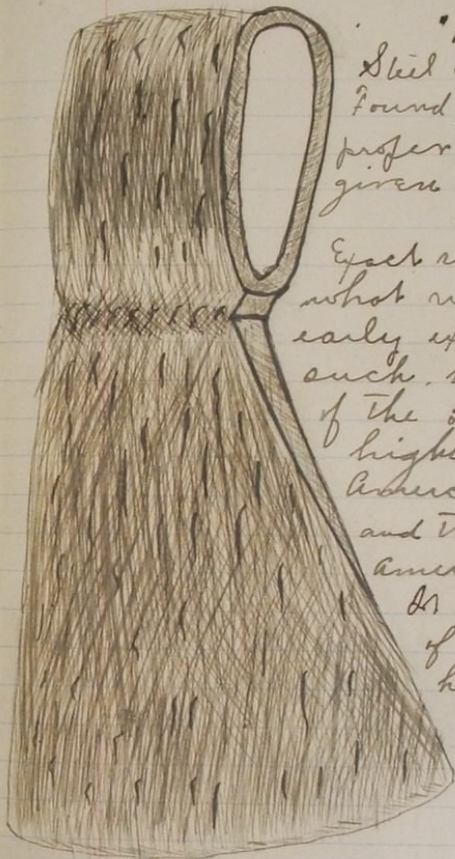 Steel
Found
profes
given
Exact
what
early ex
such.
of the
highe
Americ
and t
amer
of
h